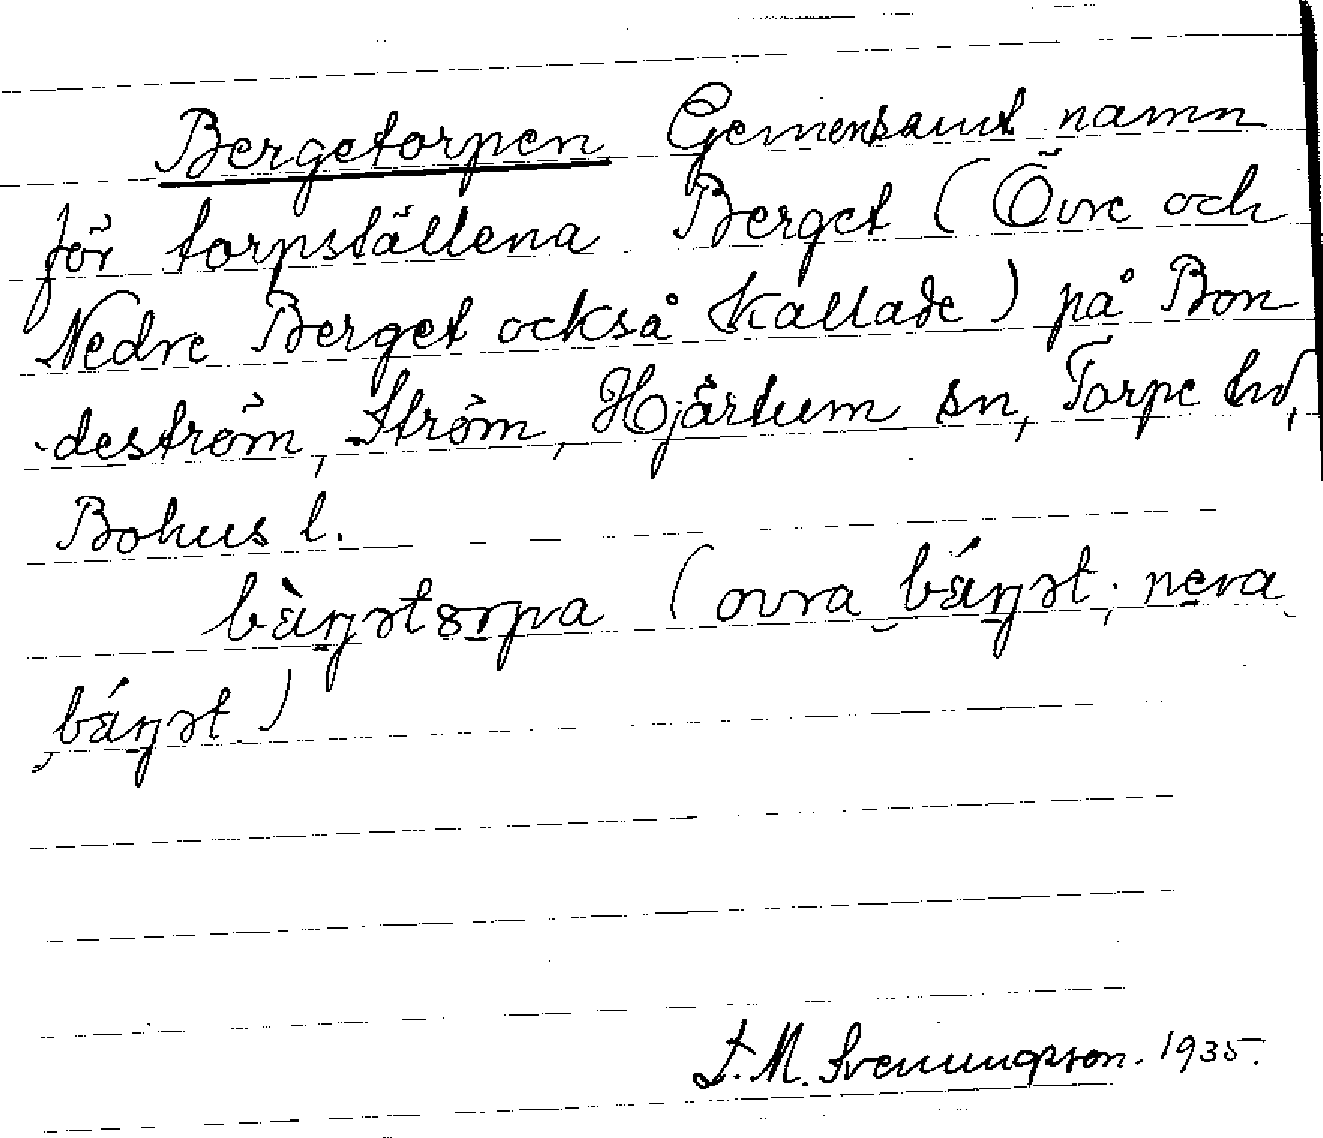 Bergetorpen Gemensamt namn
för torpställena Berget (Övre och
Nedre Berget också kallade) på Bon
deström, Ström, Hjärtum sn, Torpe hd,
Bohus l.
bàŋətorpa (ovra báŋət; nera
báŋət)
L.M. Svenungsson. 1935.